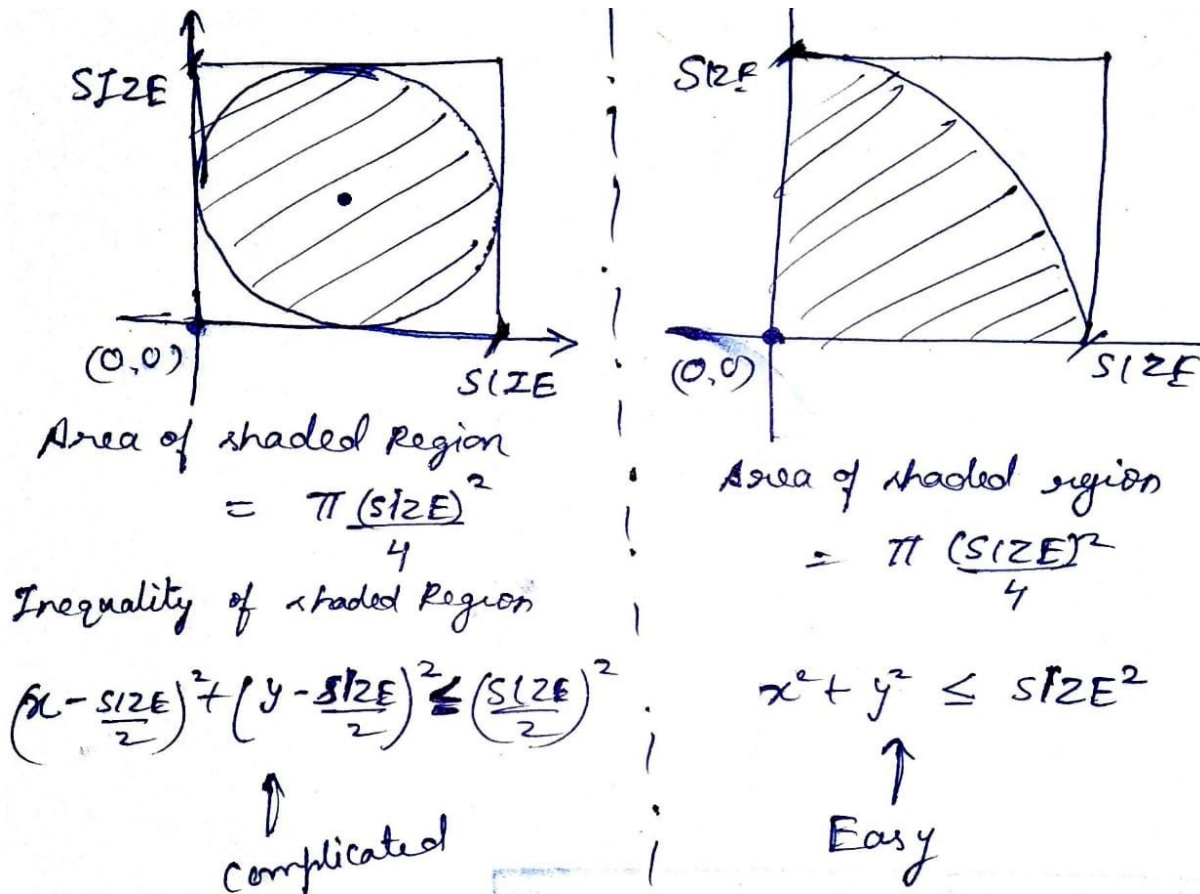 SIZE
(0,0)
SIZE
Area of shaded Region
= π (SIZE)² / 4
Inequality of shaded Region
(x - SIZE/2)² + (y - SIZE/2)² ≤ (SIZE/2)²
↑
Complicated
SIZE
(0,0)
SIZE
Area of shaded region
= π (SIZE)² / 4
x² + y² ≤ SIZE²
↑
Easy